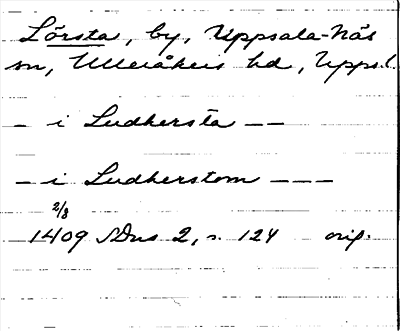 Lörsta, by, Uppsala-Näs
sn, Ulleråkers hd, Upps.l.
— i Ludhersta — —
— i Ludherstom — — —
2/8
1409 SDns 2, s. 124 orig.